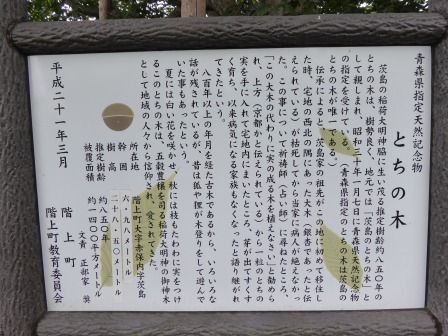 青森県指定天然記念物
とちの木
茨島の稲荷大明神脇に生い茂る推定樹齢約八五〇年の
とちの木は、樹勢良く、地元では「茨島のとちの木」と
して親しまれ、昭和三十一年一月七日に青森県天然記念物
の指定を受けている。（青森県指定のとちの木は茨島の
とちの木が唯一である）
伝承によると、茨島家の祖先がこの地に初めて移住し
た時、宅地の西北の隅にあった大木（銀杏であったと伝
えられている）が枯死してから当家に病人が絶えなかっ
た。この事について祈祷師（占い師）に尋ねたところ、
「この大木の代わりに実の成る木を植えなさい」と勧めら
れ、上方（京都かと伝えられている）から一粒のとちの
実を手に入れて宅地内にまいたところ、芽が出てすくす
く育ち、以来病気になる家族もなくなったと語り継がれ
てきたという。
八百年以上の年月を経た古木であるから、いろいろな
話が残されているが、昔は狐や狸が木登りをして遊んで
いた事もあったという。
夏には白い花を咲かせ、秋には枝もたわわに実をつけ
るこのとちの木は、五穀豊穣を司る稲荷大明神の御神木
として地域の人々から信仰され、愛されてきた。
所在地 階上町大字赤保内字茨島
幹囲 六・九〇メートル
樹高 二十八・五〇メートル
推定樹齢 約八五〇年
被覆面積 約四〇〇平方メートル
文責 正部家 奨
平成二十一年三月
階上町
階上町教育委員会